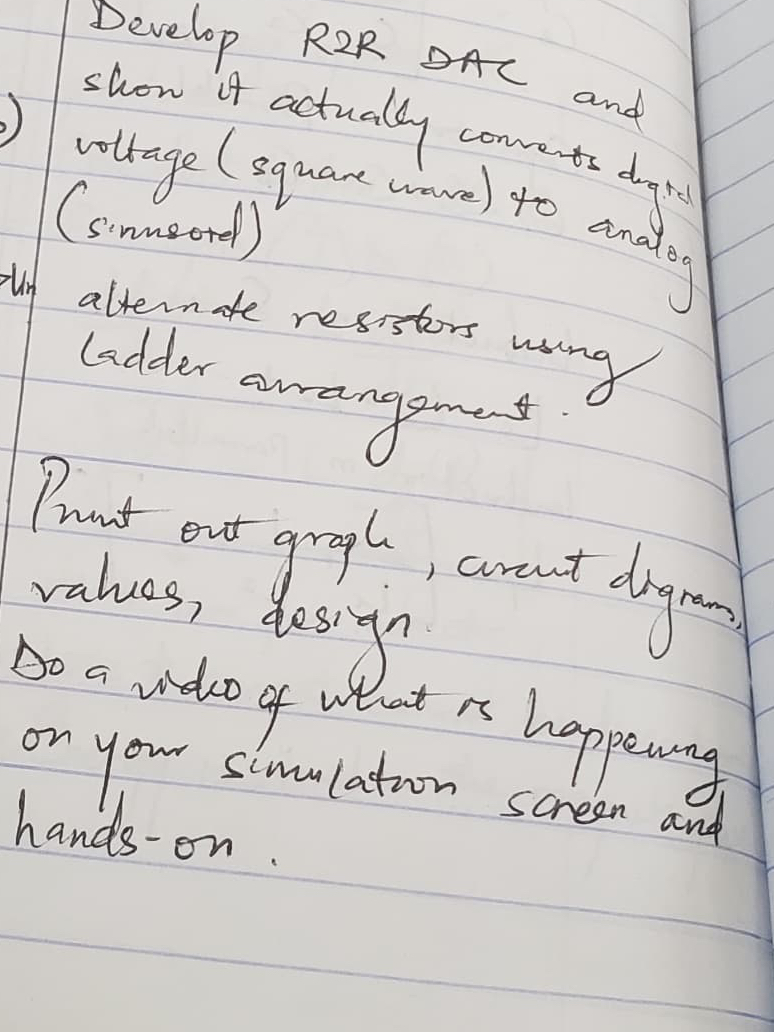 Develop R2R DAC and
show it actually converts digital
voltage (square wave) to analog
(sinusoid)
alternate resistors using
ladder arrangement.
Print out graph, circuit digrams,
values, design.
Do a video of what is happening
on your simulation screen and
hands-on.